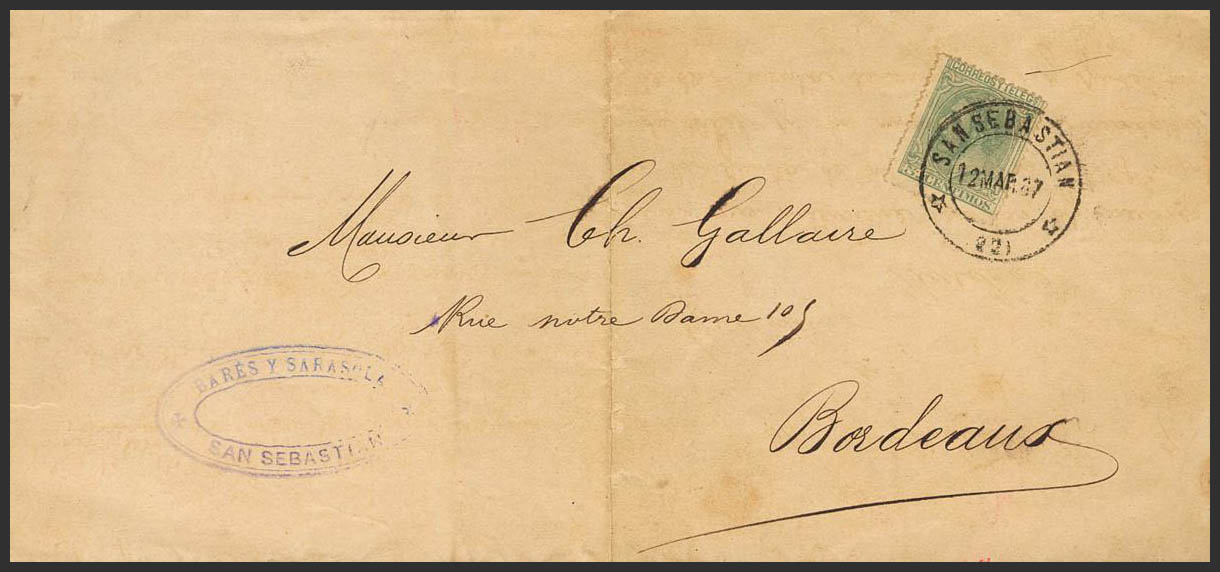 CORREOS Y TELEGS
CENTIMOS
SAN SEBASTIAN
12 MAR. 87
Monsieur Ch. Gallaire
Rue notre Dame 105
Bordeaux
BARÉS Y SARASOLA
SAN SEBASTIAN